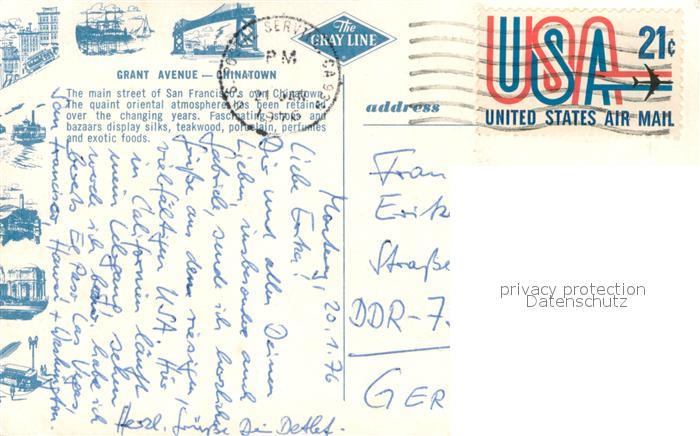 The
GRAY LINE
GRANT AVENUE — CHINATOWN
The main street of San Francisco's own Chinatown.
The quaint oriental atmosphere has been retained
over the changing years. Fascinating shops and
bazaars display silks, teakwood, porcelain, perfumes
and exotic foods.
SERV
CA
PM
1976
address
USA 21¢
UNITED STATES AIR MAIL
20.1.76
Liebe Erika!
Dir und allen Deinen
Lieben, insbesondere auch
Gabriele, sende ich herzliche
Grüße aus dem riesigen,
vielfältigen USA. Hier
in Californien läuft
mein Lehrgang, sehen
werde ich bzw. habe ich
bereits El Paso, Las Vegas,
San Francisco, Hawaii + Washington.
Herzl. Grüße Dein Detlef.
Frau
Erik
Straße
DDR-7
GER
privacy protection
Datenschutz